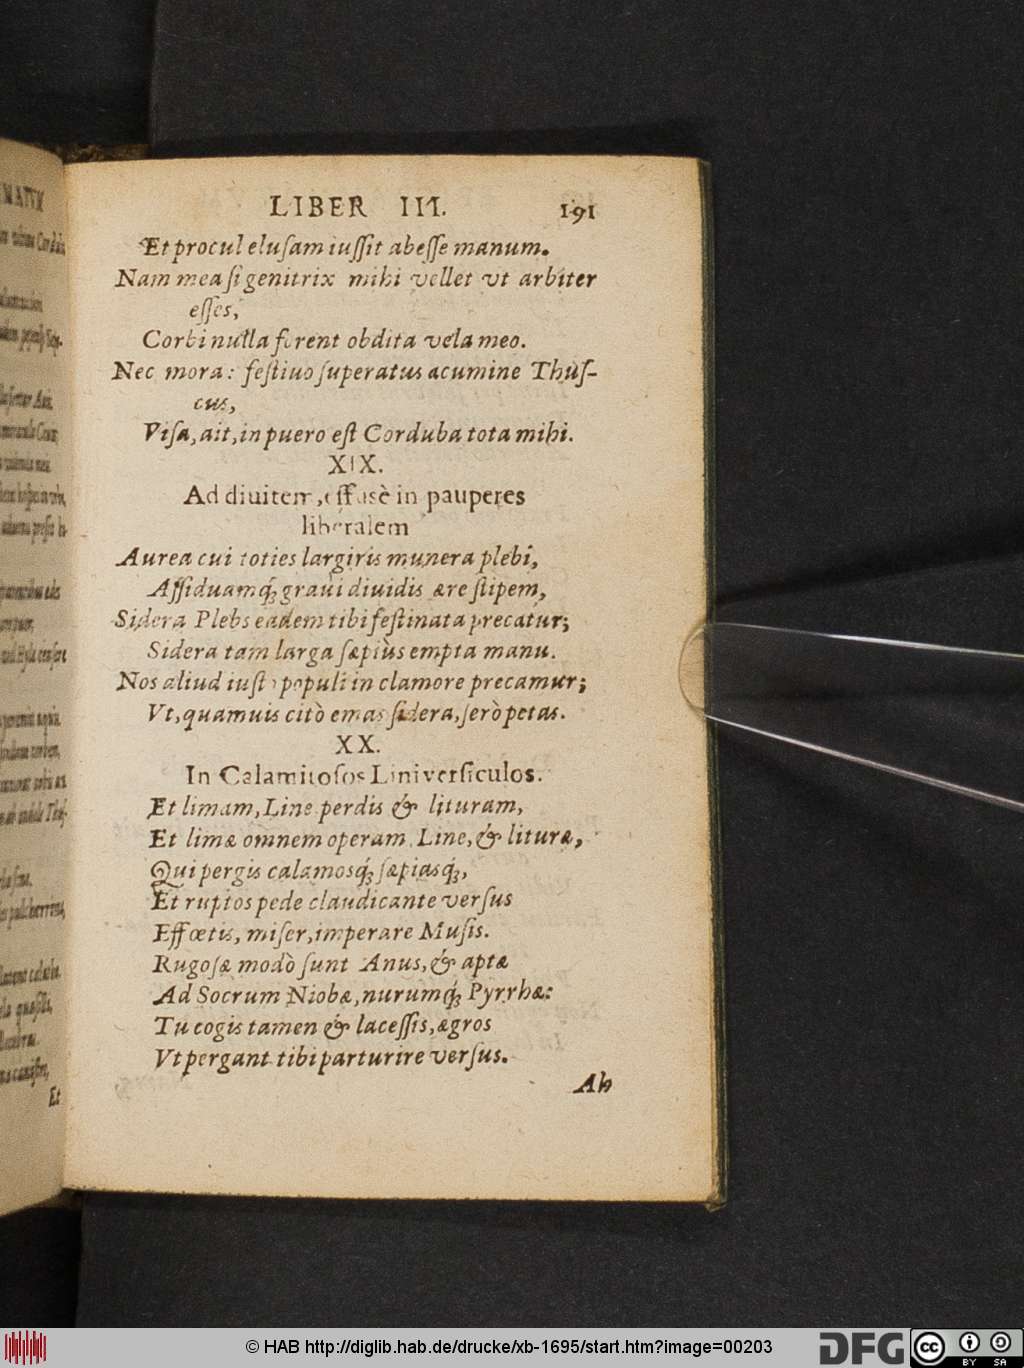 LIBER III.
191
Et procul elusam iussit abesse manum.
Nam mea si genitrix mihi vellet vt arbiter
esses,
Corbi nulla forent obdita vela meo.
Nec mora: festiuo superatus acumine Thus-
cus,
Visa, ait, in puero est Corduba tota mihi.
XIX.
Ad diuitem, effusè in pauperes
liberalem
Aurea cui toties largiris munera plebi,
Assiduamq́; graui diuidis ære stipem,
Sidera Plebs eadem tibi festinata precatur;
Sidera tam larga sæpiùs empta manu.
Nos aliud iusto populi in clamore precamur;
Vt, quamuis citò emas sidera, serò petas.
XX.
In Calamitosos Lini versiculos.
Et limam, Line perdis & lituram,
Et limæ omnem operam Line, & lituræ,
Qui pergis calamosq́; sæpiasq́;,
Et ruptos pede claudicante versus
Effœtis, miser, imperare Musis.
Rugosæ modò sunt Anus, & aptæ
Ad Socrum Niobæ, nurumq́; Pyrrhæ:
Tu cogis tamen & lacessis, ægros
Vt pergant tibi parturire versus.
Ah
MATVM
Et
© HAB http://diglib.hab.de/drucke/xb-1695/start.htm?image=00203
DFG
cc
BY
SA